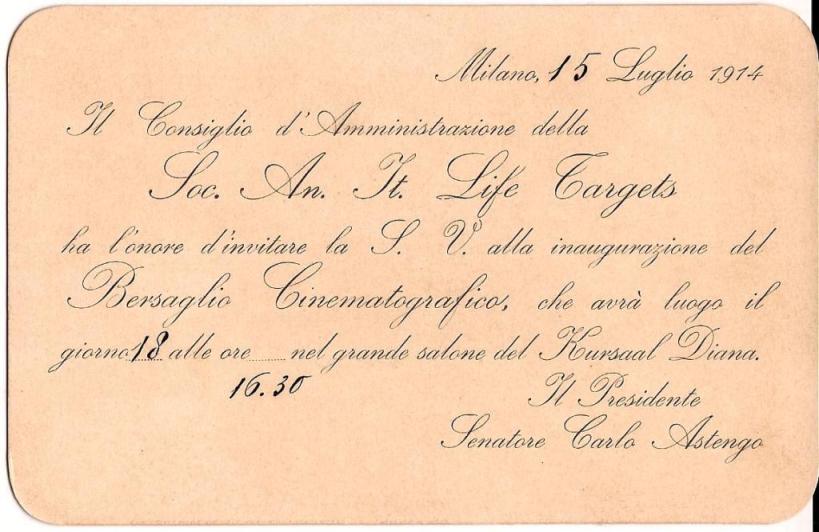 Milano, 15 Luglio 1914
Il Consiglio d'Amministrazione della
Soc. An. It. Life Targets
ha l'onore d'invitare la S. V. alla inaugurazione del
Bersaglio Cinematografico, che avrà luogo il
giorno 18 alle ore ...... nel grande salone del Kursaal Diana.
16.30
Il Presidente
Senatore Carlo Astengo